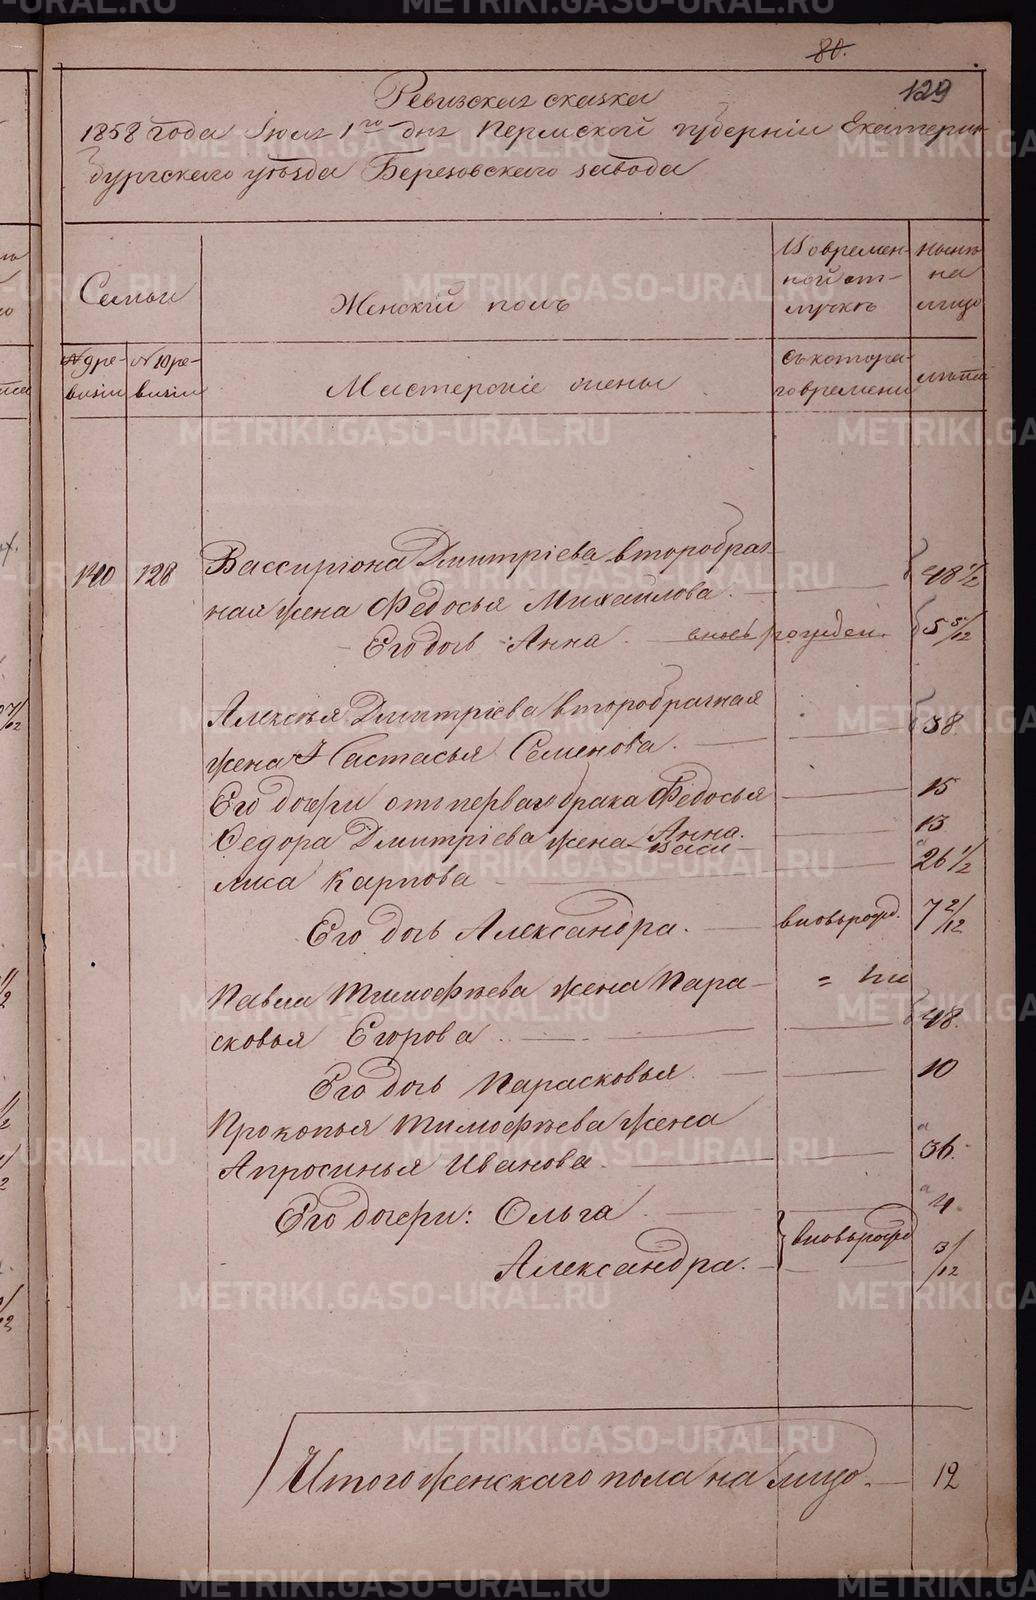 80.
129
Ревизская сказка
1858 года Іюля 1го дня Пермской губерніи Екатерин-
бургскаго уѣзда Березовскаго завода
Семьи
Женскій полъ
Во времен-
ной от-
лучкѣ
Нынѣ
на
лицо
№ 9 ре-
визіи
№ 10 ре-
визіи
Мастерскіе жены
Съ котора-
го времени
лѣта
140 128 Вассиріона Дмитріева второбрач-
ная жена Федосья Михайлова. 48 1/2
Его дочь Анна. вновь рожден. 5 5/12
Алексѣя Дмитріева второбрачная
жена Настасья Семенова. 38.
Его дочери отъ перваго брака Федосья 15
Анна. 13
Федора Дмитріева жена Васи-
лиса Карпова 26 1/2
Его дочь Александра. вновь рожд. 7 2/12
Павла Тимофѣева жена Пара-
сковья Егорова 48.
Его дочь Парасковья. 10
Прокопья Тимофѣева жена
Апросинья Иванова. 36.
Его дочери: Ольга 4
вновь рожд
Александра. 3/12
Итого женскаго пола на лицо. 12
METRIKI.GASO-URAL.RU